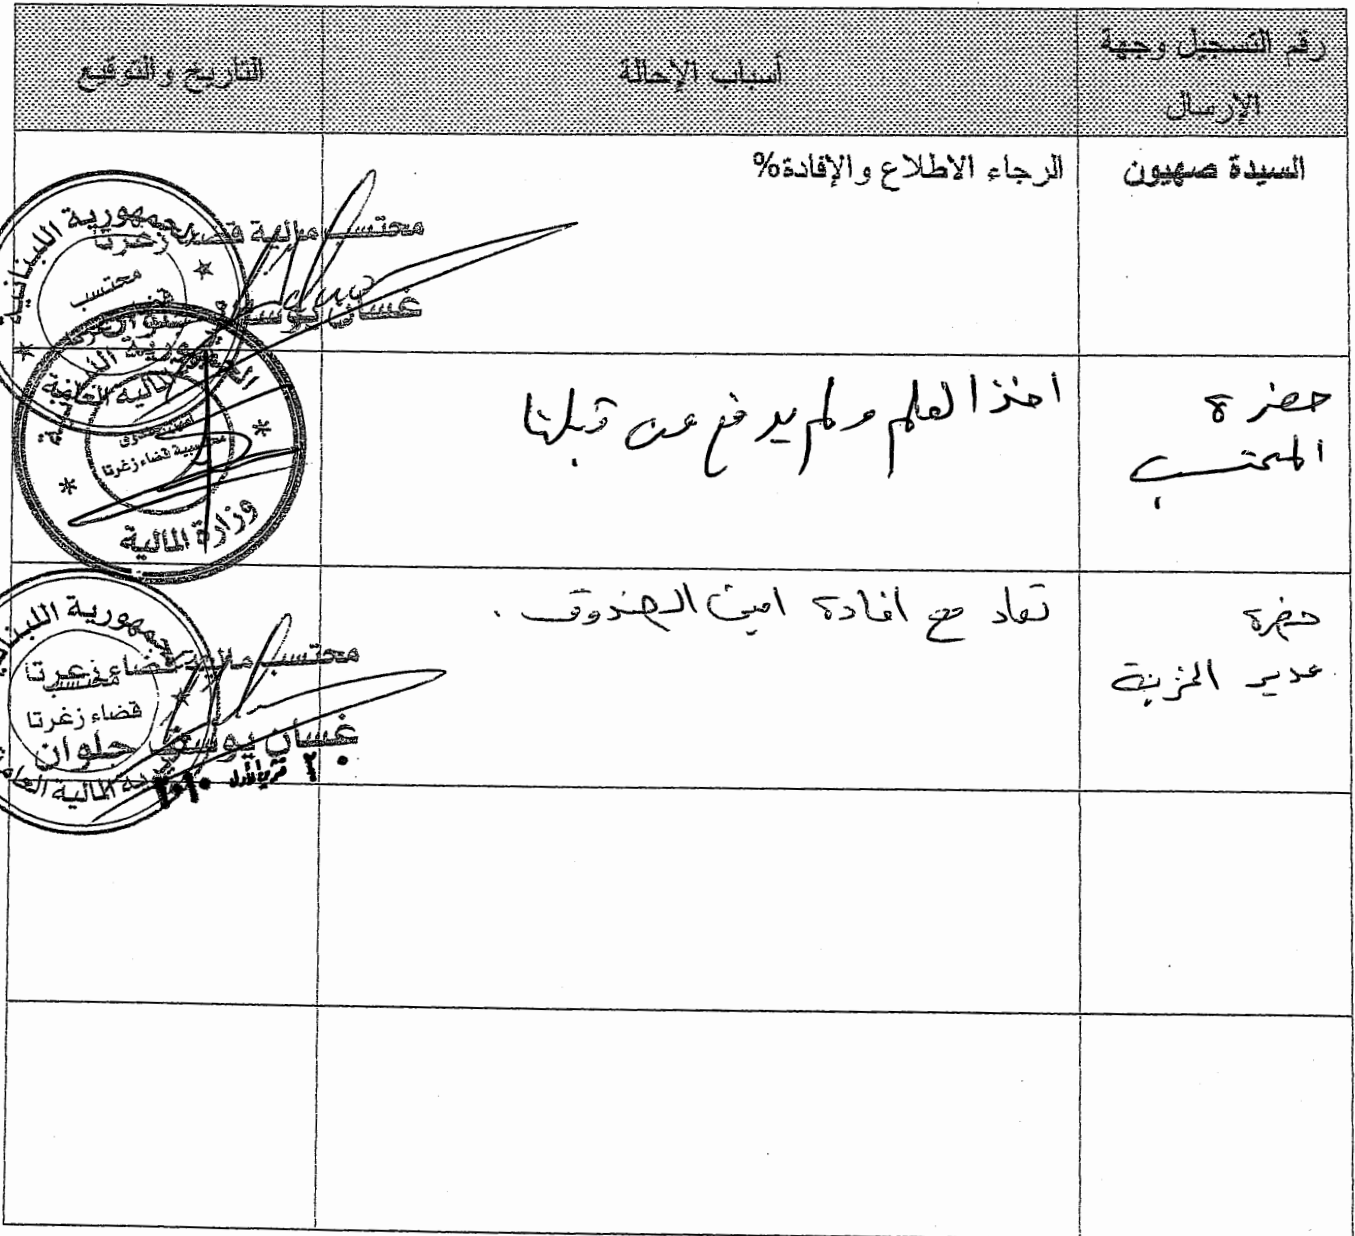 رقم التسجيل وجهة
الإرسال
أسباب الإحالة
التاريخ والتوقيع
السيدة صهيون
الرجاء الاطلاع والإفادة%
محتسب مالية قضاء زغرتا
غسان يوسف
الجمهورية اللبنانية
محتسب
حضرة
المحتسب
اخذ العلم ولم يدفع من قبلنا
المالية العامة
امين صندوق
محتسبية قضاء زغرتا
وزارة المالية
حضرة
مدير الخزينة
تعاد مع افادة امين الصندوق .
الجمهورية اللبنانية
محتسب مالية قضاء زغرتا
محتسب
قضاء زغرتا
غسان يوسف جلوان
٢٠ تشرين الأول ٢٠١٠
المالية العامة